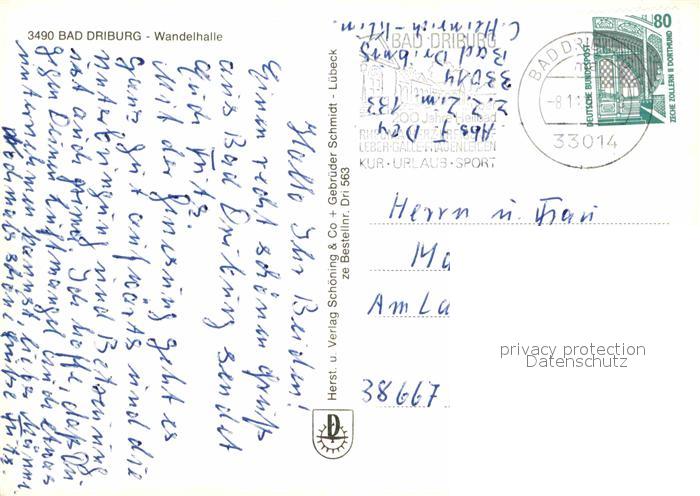 3490 BAD DRIBURG - Wandelhalle
Hallo Ihr Beiden!
Einen recht schönen Gruß
aus Bad Driburg sendet
Euch Fritz.
Mit der Genesung geht es
ganz gut aufwärts und die
Unterbringung und Betreuung
ist auch prima. Ich hoffe, daß Du
gegen Deinen Luftmangel auch etwas
unternehmen kannst, lieber
Nochmals schöne Grüße Fritz.
Herst. u. Verlag Schöning & Co + Gebrüder Schmidt - Lübeck
ze Bestellnr. Dri 563
Abs. F.
z. Z. Zim. 133
33014
Bad Driburg
C. Heinrich-Klin.
BAD DRIBURG
200 Jahre Heilbad
LEBER-GALLE-FRAUENLEIDEN
KUR · URLAUB · SPORT
BAD DRIBURG
-8.1
33014
80
DEUTSCHE BUNDESPOST
ZECHE ZOLLERN II DORTMUND
Herrn u. Frau
Ma
Am La
38667
privacy protection
Datenschutz